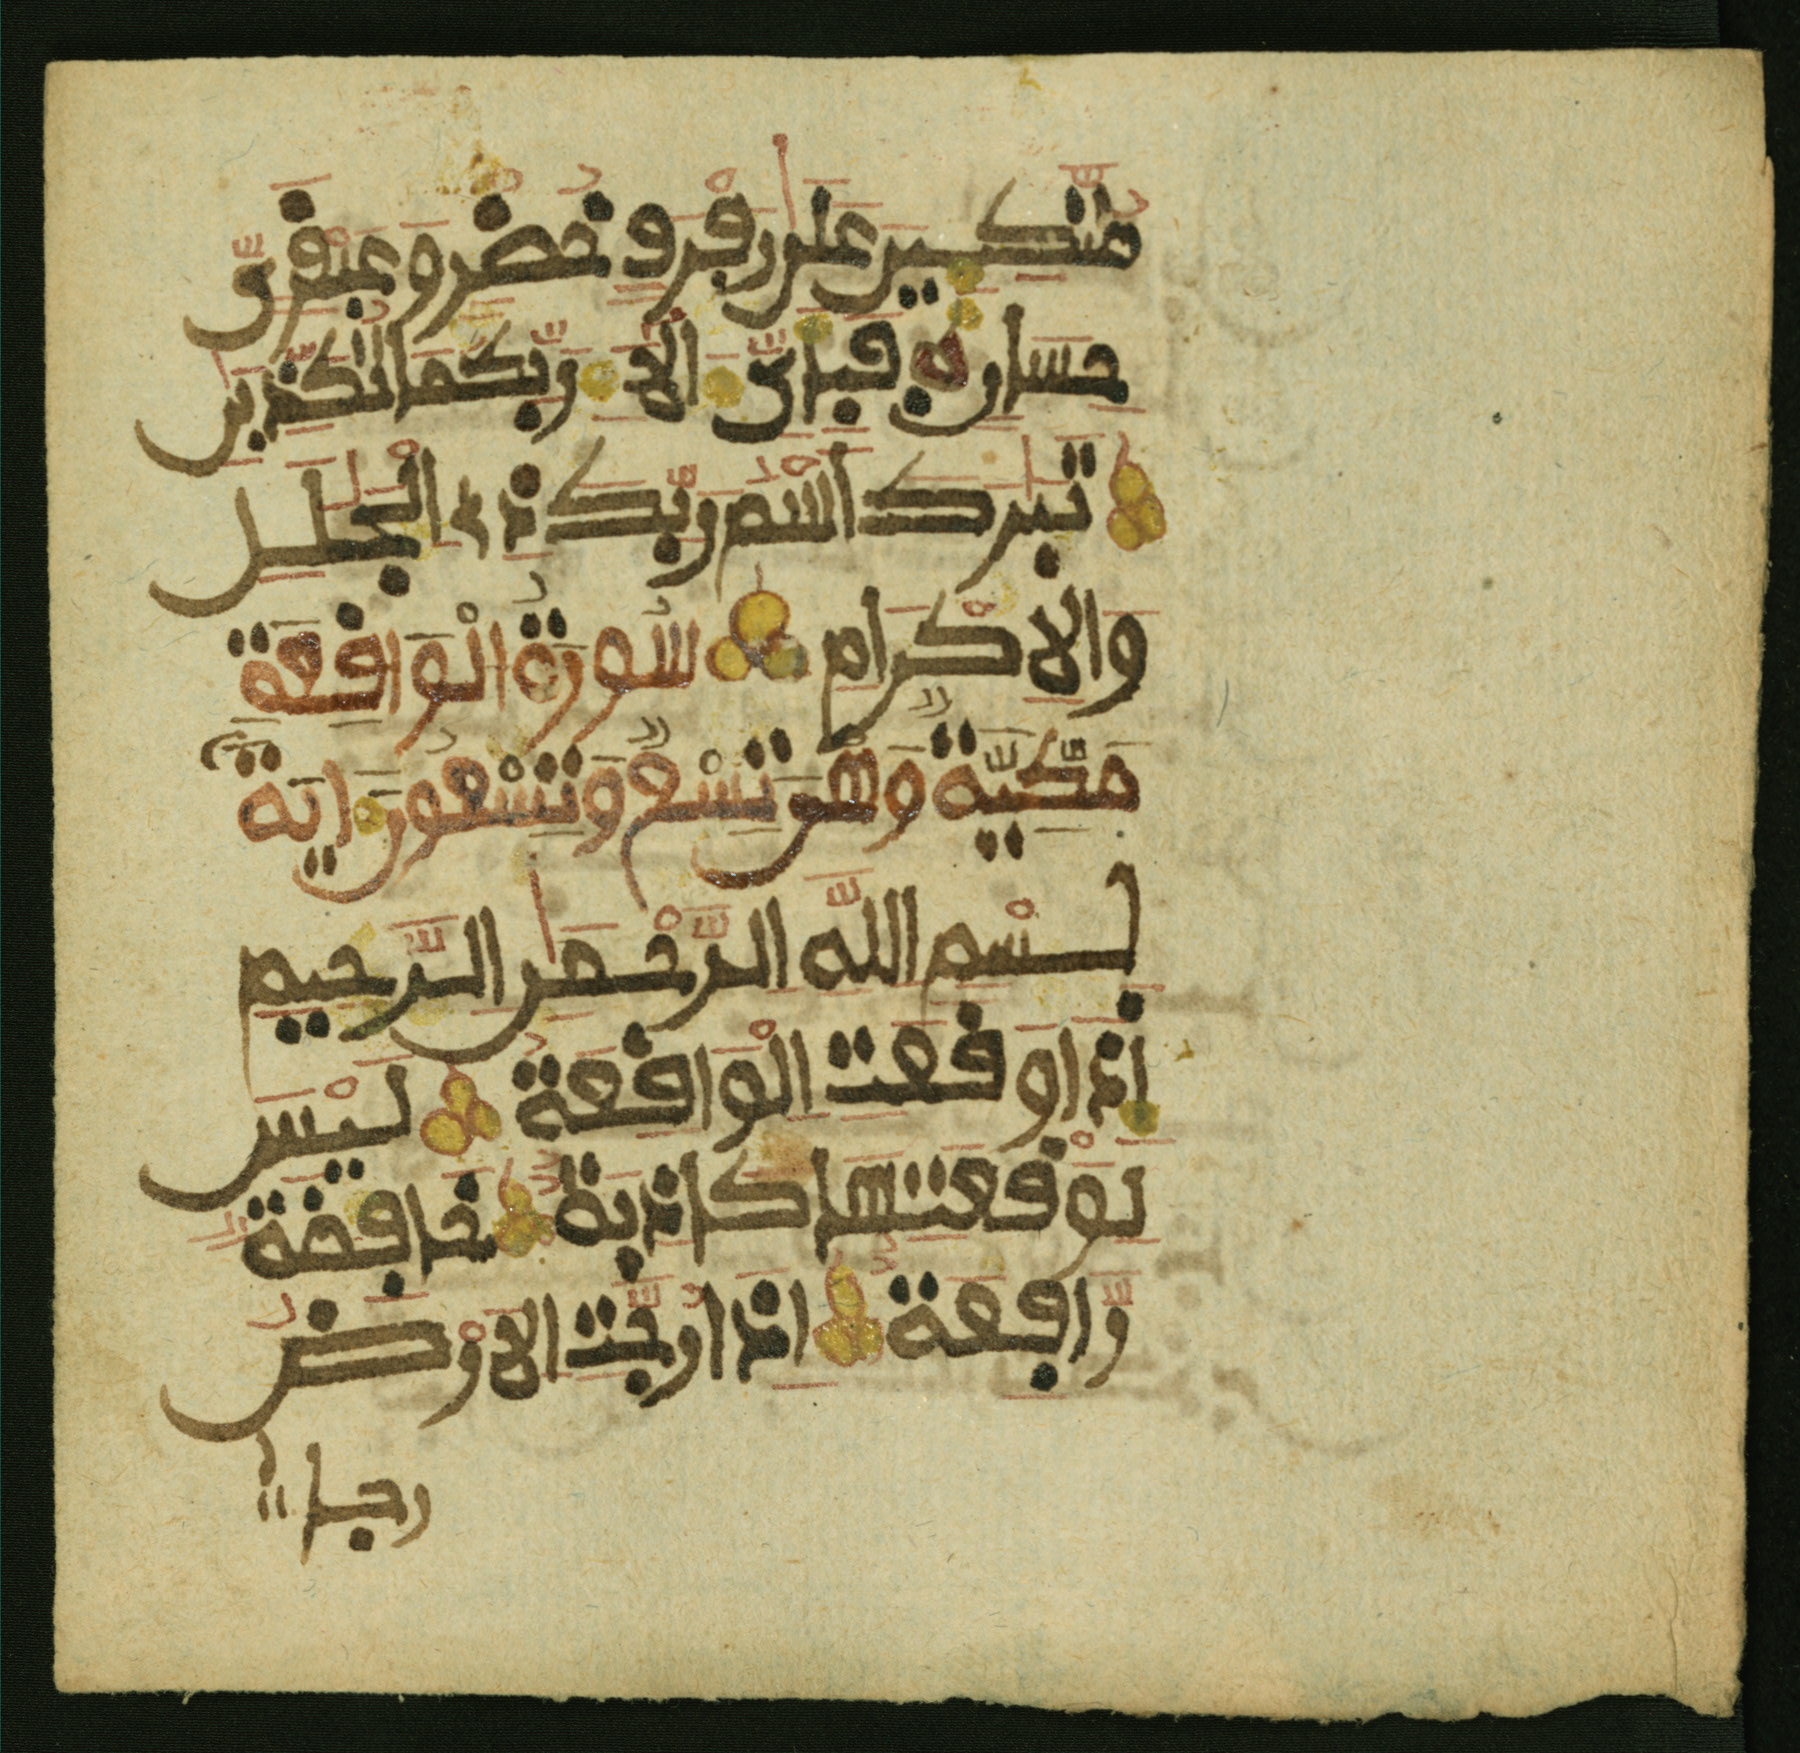 متكـين على رفرف خضر وعبقرى
حسان فبأى الا ربكما تكذبن
تبرك اسم ربك ذى الجلل
والاكرام سورة الواقعة
مكية وهى تسع وتسعون اية
بسم الله الرحمن الرحيم
اذا وقعت الواقعة ليس
لوقعتها كاذبة خافضة
رافعة اذا رجت الارض
رجا